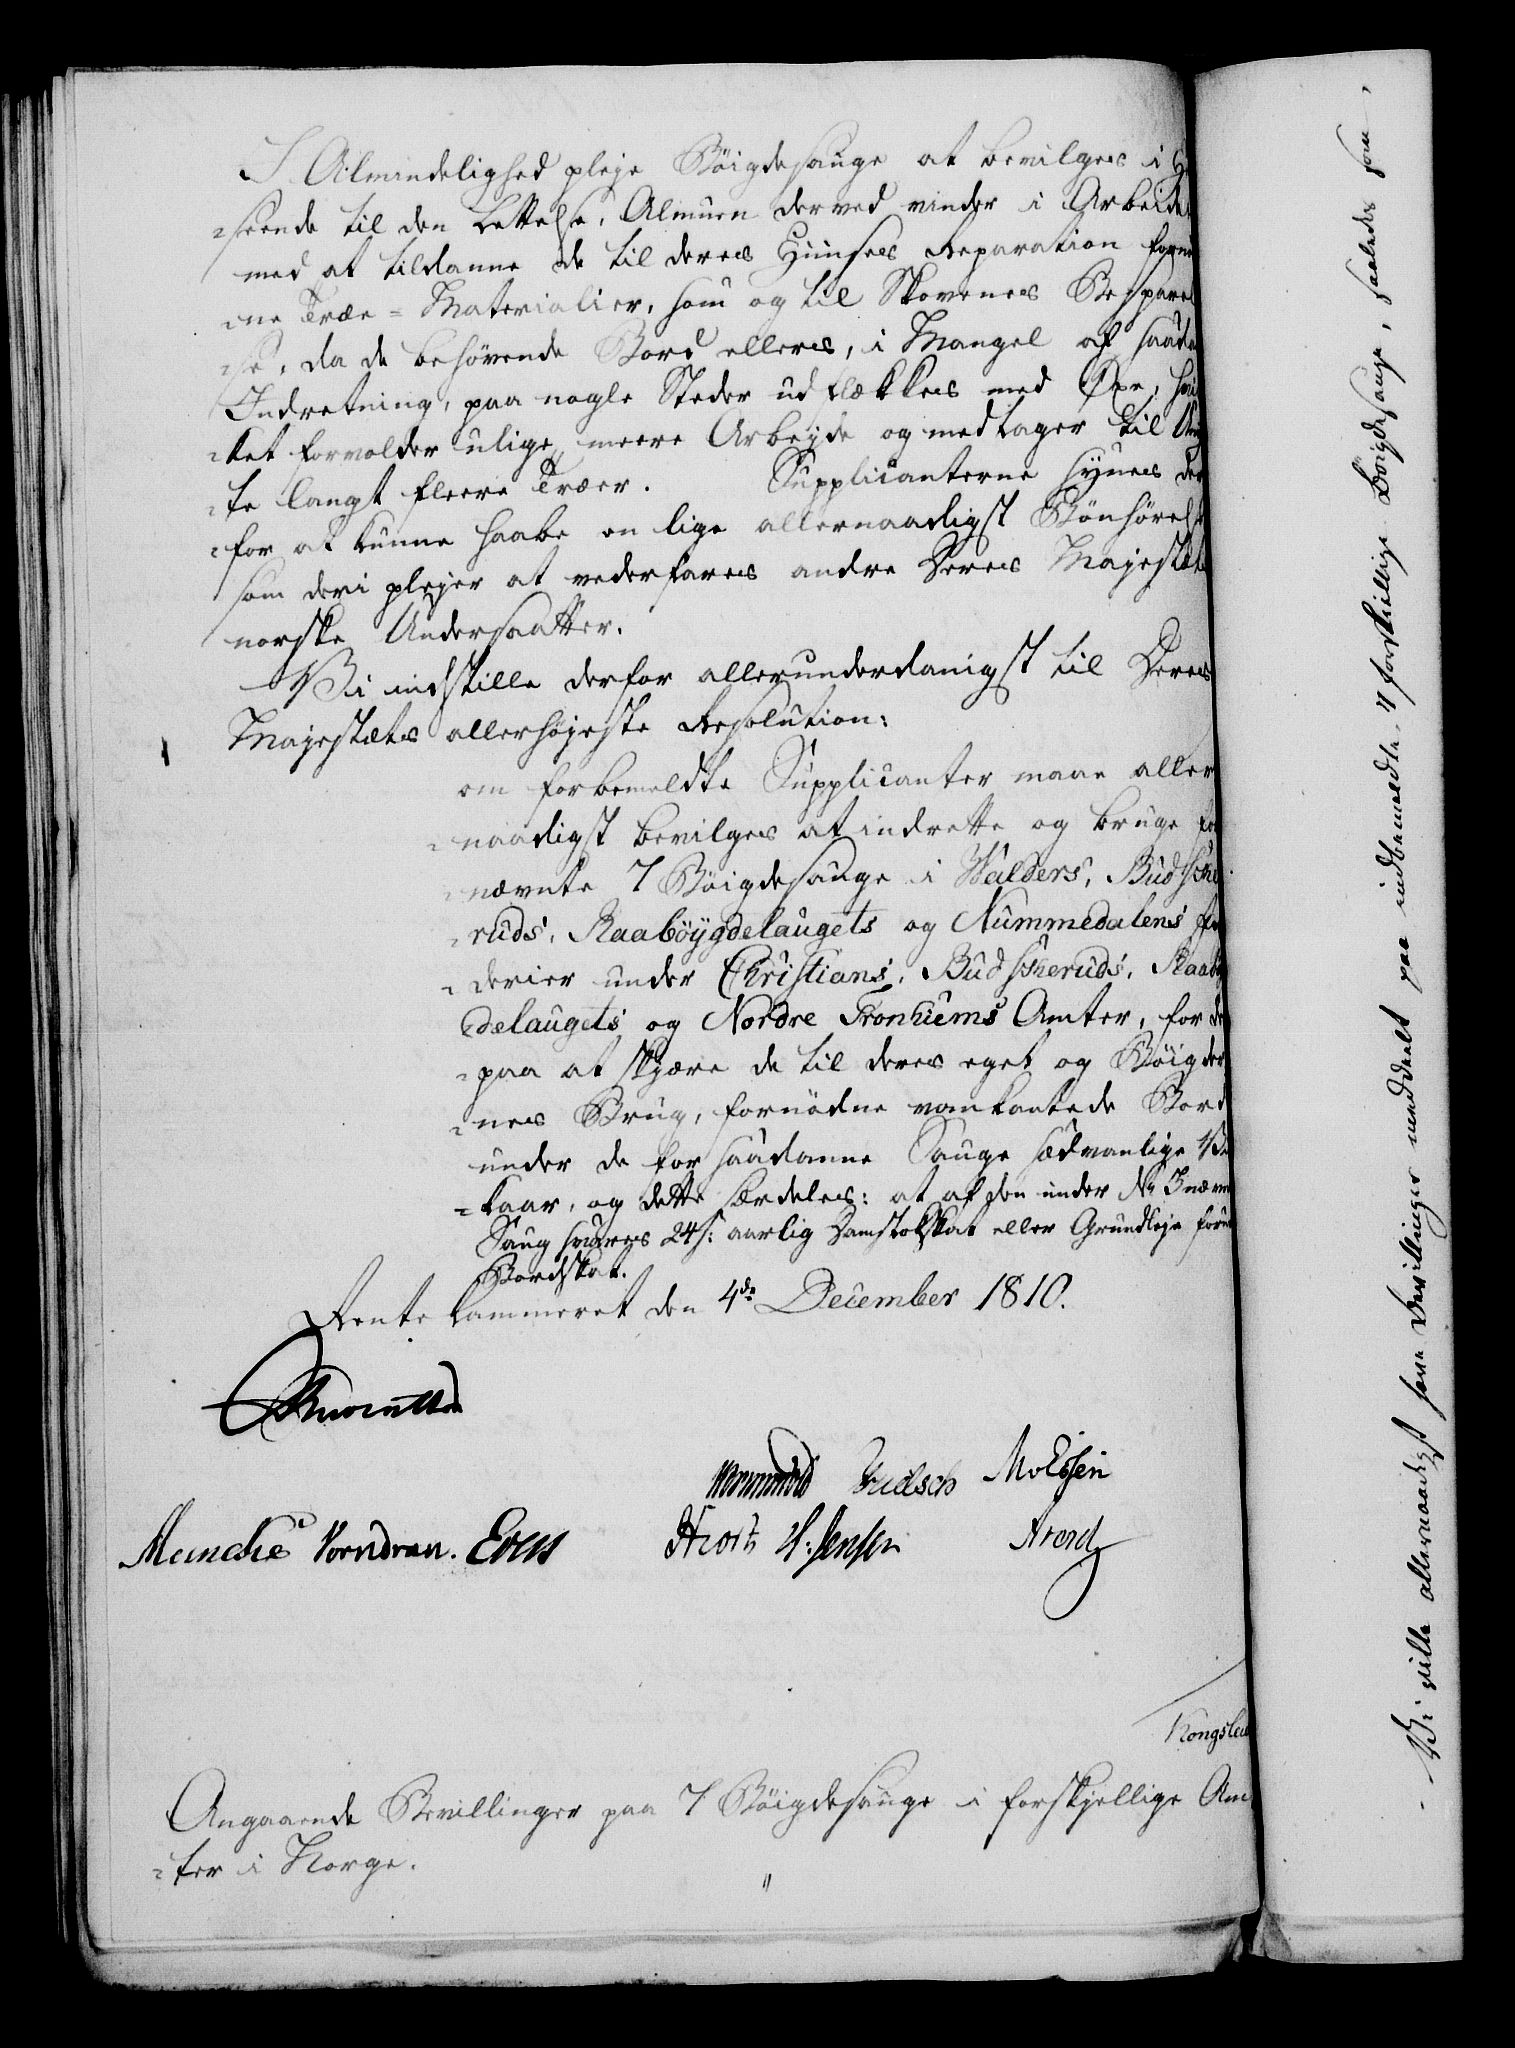 I Almindelighed pleje Böigdesauge at bevilges i H
=seende til den Lettelse, Almuen derved vinder i Arbeidet
med at tildanne de til deres Huuses Reparation fornö
=ne Træe=Materialier, som og til Skovenes Bespare
=se, da de behövende Bord ellers, i Mangel af saada
Indretning, paa nogle Steder udflækkes med Öxe, hvil
=ket forvolder ulige meere Arbeyde og medtager til
=te langt fleere Træer. Supplicanterne synes der
=for at kunne haabe en lige allernaadigst Bönhörelse
som deri plejer at vederfares andre Deres Majestæts
norske Undersaatter.
Vi indstille derfor allerunderdanigst til Deres
Majestæts allerhöjeste Resolution:
om forbemeldte Supplicanter maae aller
=naadigst bevilges at indrette og bruge for
=nævnte 7 Böigdesauge i Walders, Budsche
=ruds, Raaböÿgdelaugets og Nummedalens Fo
=derier under Christians, Budscheruds, Raaböÿ
gdelaugets og Nordre Tronhiems Amter, for der
=paa at skjære de til deres eget og Böigder
=nes Brug, fornödne vankantede Bord
under de for saadanne Sauge sædvanlige Vil
=kaar, og dette særdeles: at af den under No 3 nævn
Saug svares 24 s: aarlig Damstokskat eller Grundleje foruden
Bordskat.
Rentekammeret den 4de December 1810.
Wormskiold Knudsen M v Essen
Munche Vorndran. Hiort H: Jensen Arend
Kongsleu
Angaaende Bevillinger paa 7 Böigdesauge i forskjellige Am
=ter i Norge.
Vi ville allernaadigst have Bevillinger meddeelt paa indbemeldte 7 forskiellige Böigdesauge, saaledes som